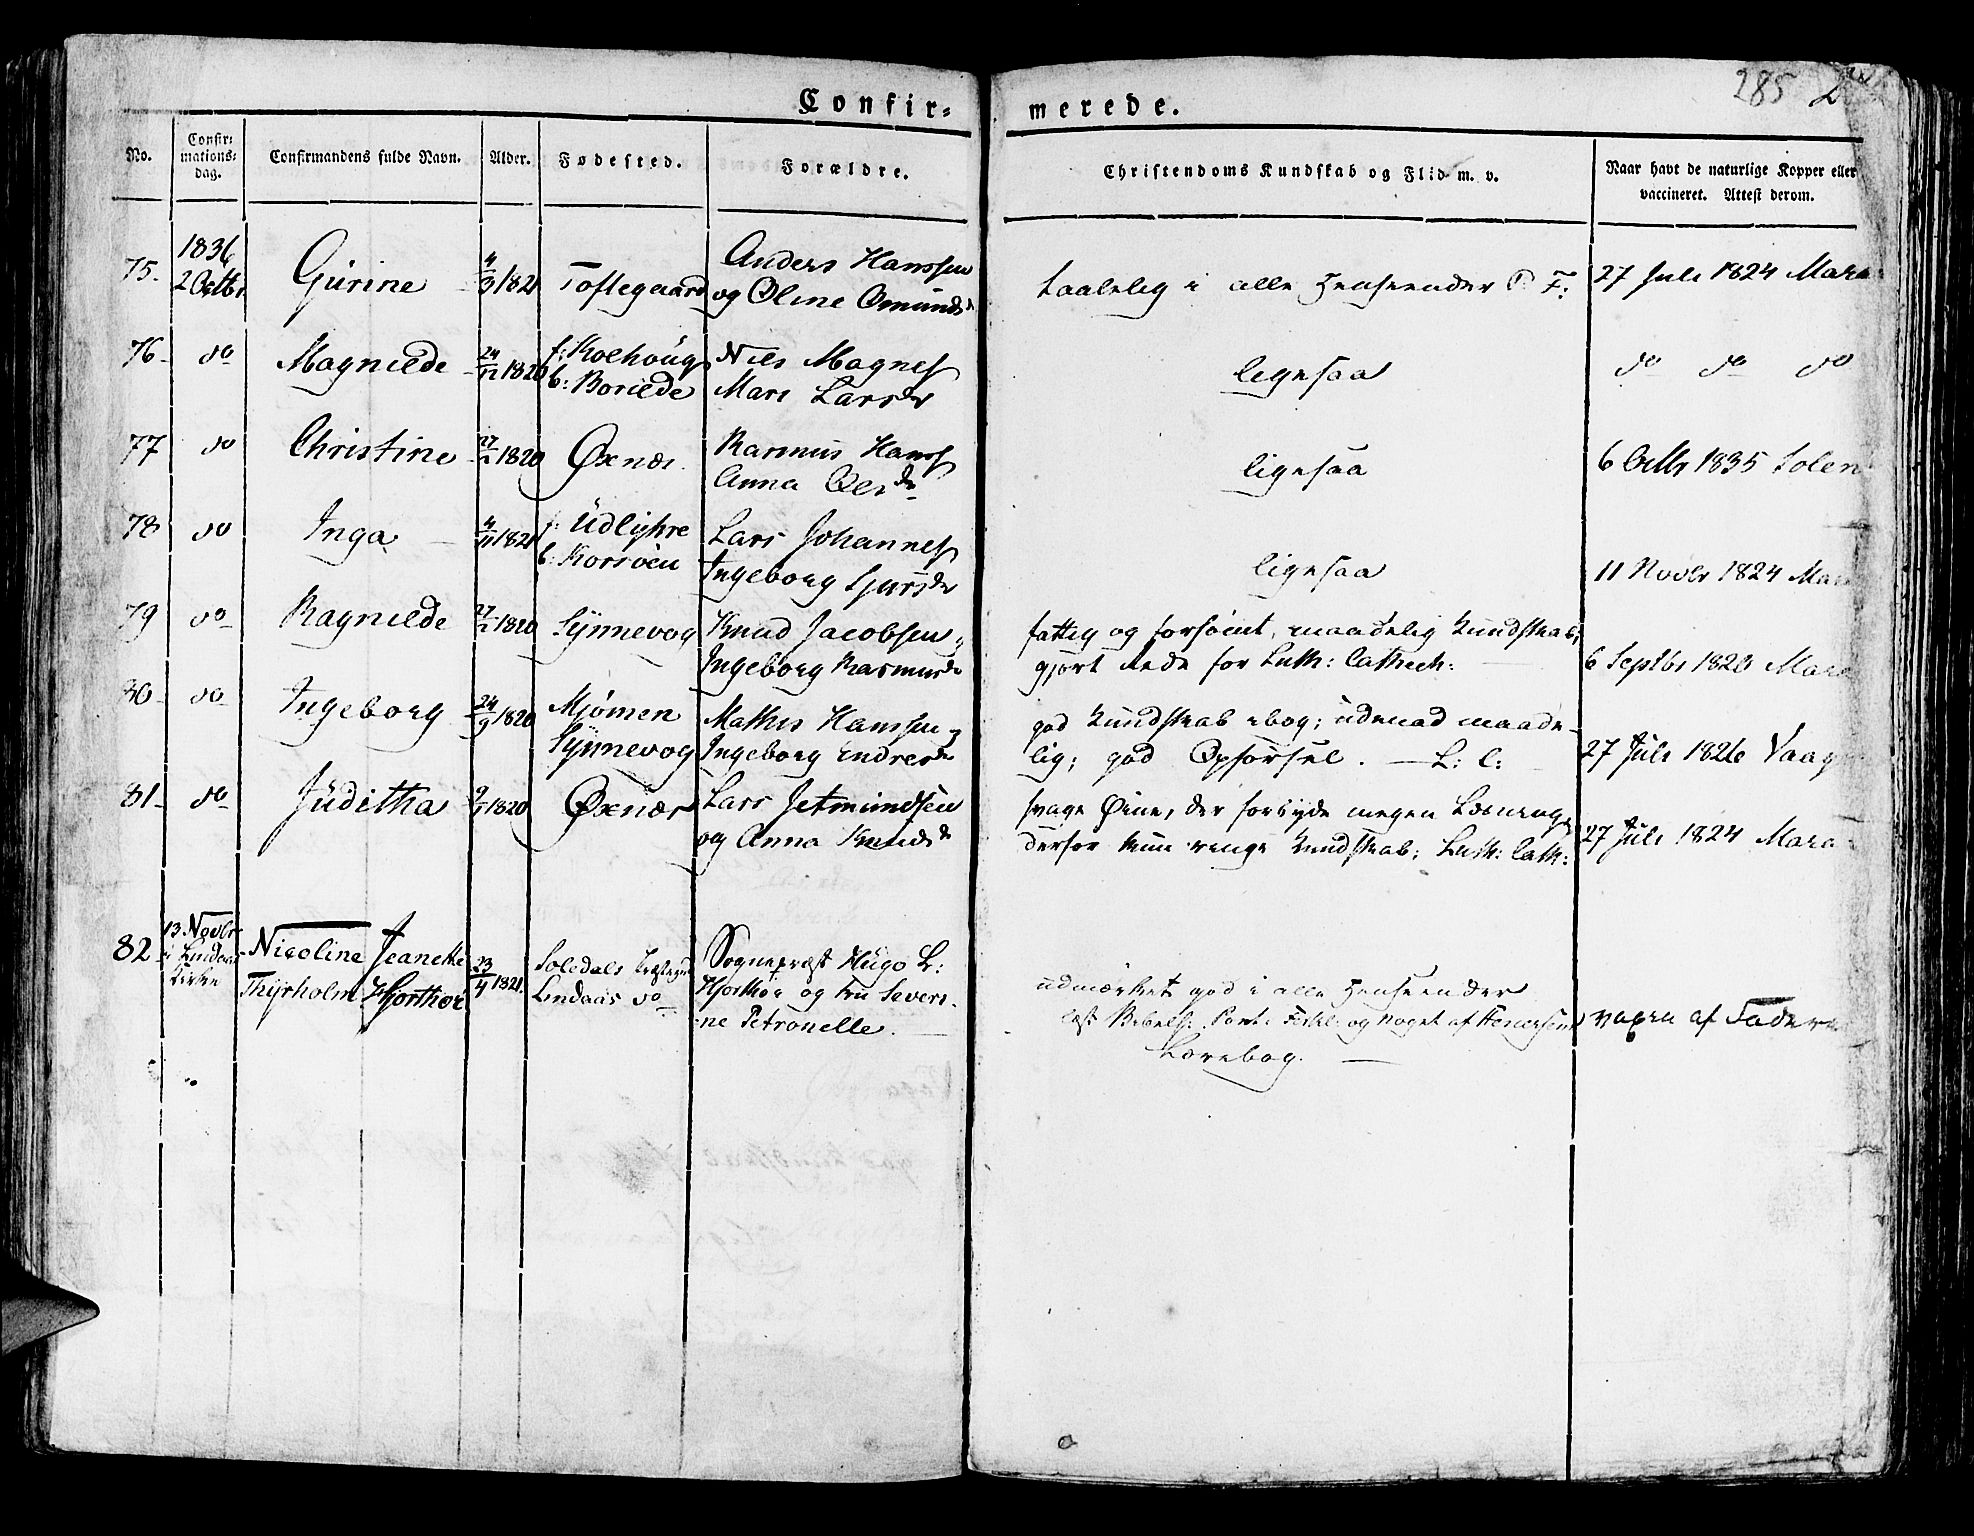 Confir= merede.
285
No. Confir=mations=dag. Confirmandens fulde Navn. Alder. Fødested. Forældre. Christendoms Kundskab og Flid m. v. Naar havt de naturlige Kopper eller vaccineret. Attest derom.
75. 1836 2 Octbr Gurine 4/9 1821 Toftegaard Anders Hanssen
og Oline Omunds taalelig i alle Henseender P. F: 27 Juli 1824
76 do Magnilde 24/12 1820 f: Kolhoug Niels Magness
b: Boriede Mari Larsdr ligesaa do do do
77 do Christine 27/2 1820 Øxnæs Rasmus Hanss
Anna Olsdr ligesaa 6 Octbr 1835
78 do Inga 4/11 1821 f: Udlyhre Lars Johanness
b: Korsöen Ingeborg Sjursdr ligesaa 11 Novbr 1824
79 do Ragnilde 1820 Synnevog Knud Jacobsen
Ingeborg Rasmusdr fattig og forsömt, maadelig Kundskab,
gjort Rede for Luth: Cathech: 6 Septbr 1820
80 do Ingeborg 24/9 1820 Mjømen Mathis Hanssen
Synnevog Ingeborg Endresdr god Kundskab i bog; udenad maade-
lig; god Opförsel. L: C: 27 Juli 1826
81 do Juditha 1820 Øxnæs Lars Jetmundsen
og Anna Knudsdr svage Øine, der forbyde megen Læsning,
derfor kun ringe Kundskab; Luth: Cath: 27 Juli 1824
82 13 Novbr i Lindaas Kirke Nicoline Jeanette
Thyrholm Hjorthøi 23/4 1821. Soledals Præstegd
Lindaas do Sognepræst Hugo L:
Hjorthøi og Fru Severi-
ne Petronelle. udmærket god i alle Henseender
læst Bibelh: Pont: Forkl: og noget af
Lærebog. vaxen af Faderen